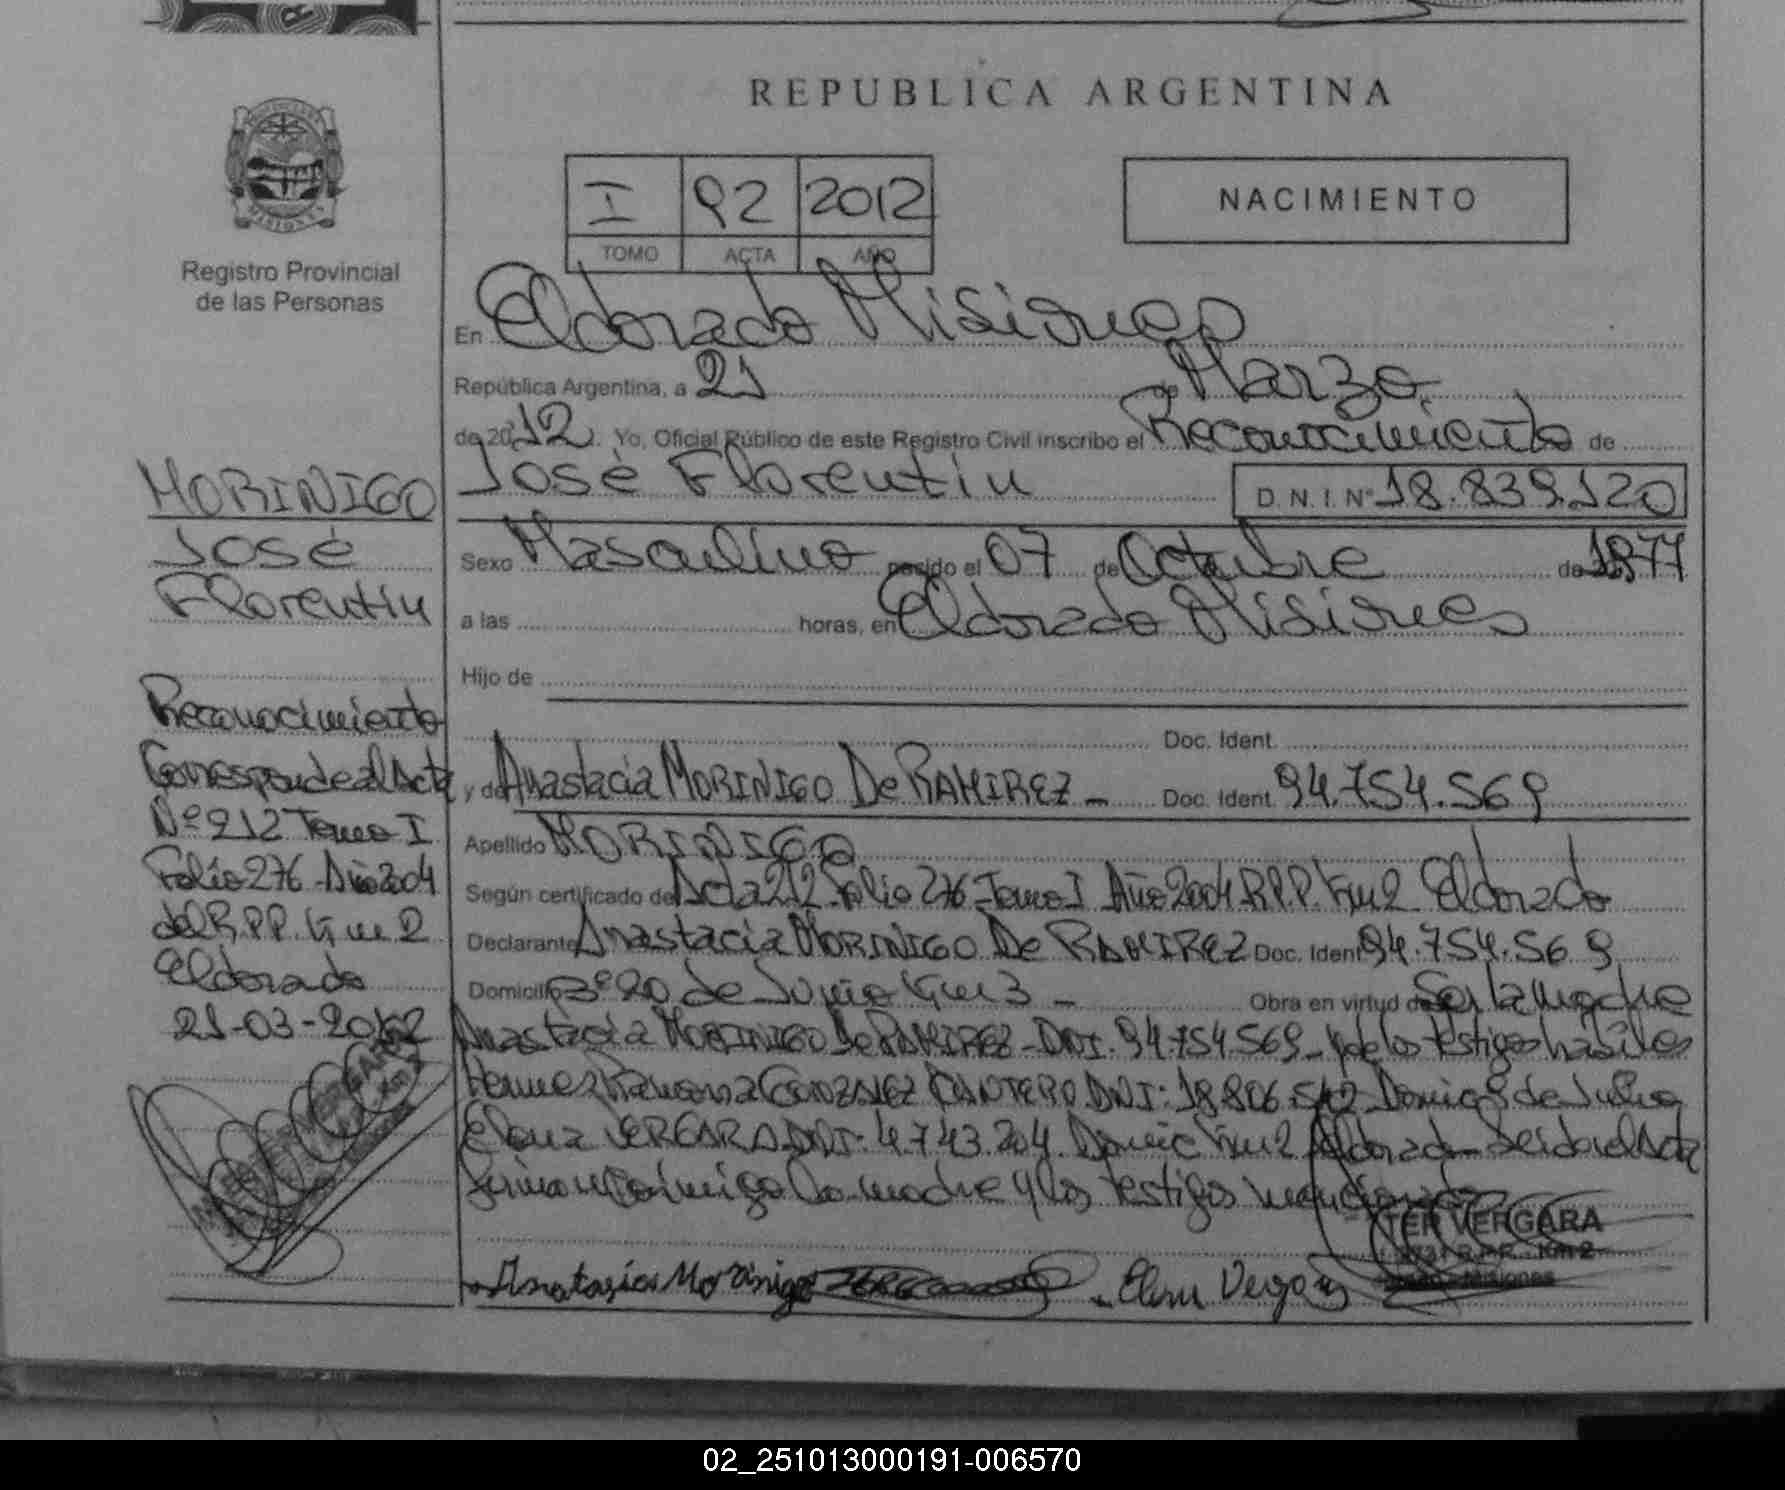 REPUBLICA ARGENTINA
MISIONES
Registro Provincial
de las Personas
I 92 2012
TOMO ACTA AÑO
NACIMIENTO
En Eldorado Misiones
República Argentina, a 21 de Marzo
de 2012. Yo, Oficial Público de este Registro Civil inscribo el Reconocimiento de
José Florentin D. N. I. Nº 18.839.120
Sexo Masculino nacido el 07 de Octubre de 1977
a las horas, en Eldorado Misiones
Hijo de
Doc. Ident.
y de Anastacia MORINIGO De RAMIREZ - Doc. Ident. 94.754.569
Apellido MORINIGO
Según certificado de Acta 212 Folio 276 - Tomo I Año 2004 R.P.P. Km 2 Eldorado
Declarante Anastacia MORINIGO De RAMIREZ Doc. Ident 94.754.569
Domicilio Bº 20 de Junio Km 3 - Obra en virtud de Ser la madre
Anastacia MORINIGO De RAMIREZ - DNI. 94.754.569 - y de los testigos hábiles
Ramona GONZALEZ CANTERO DNI: 18.806.542 Domic 9 de Julio
Elena VERGARA DNI: 4.743.204. Domic Km 2 Eldorado - Leida el Acta
firman conmigo la madre y los testigos
Anatasia Morinigo
Elena
MORINIGO
José
Florentin
Reconocimiento
Corresponde al Acta
Nº 212 Tomo I
Folio 276 - Año 2004
del R.P.P. Km 2
Eldorado
21-03-2012
TER VERGARA
R.P.P. - Km 2
Misiones
02_251013000191-006570